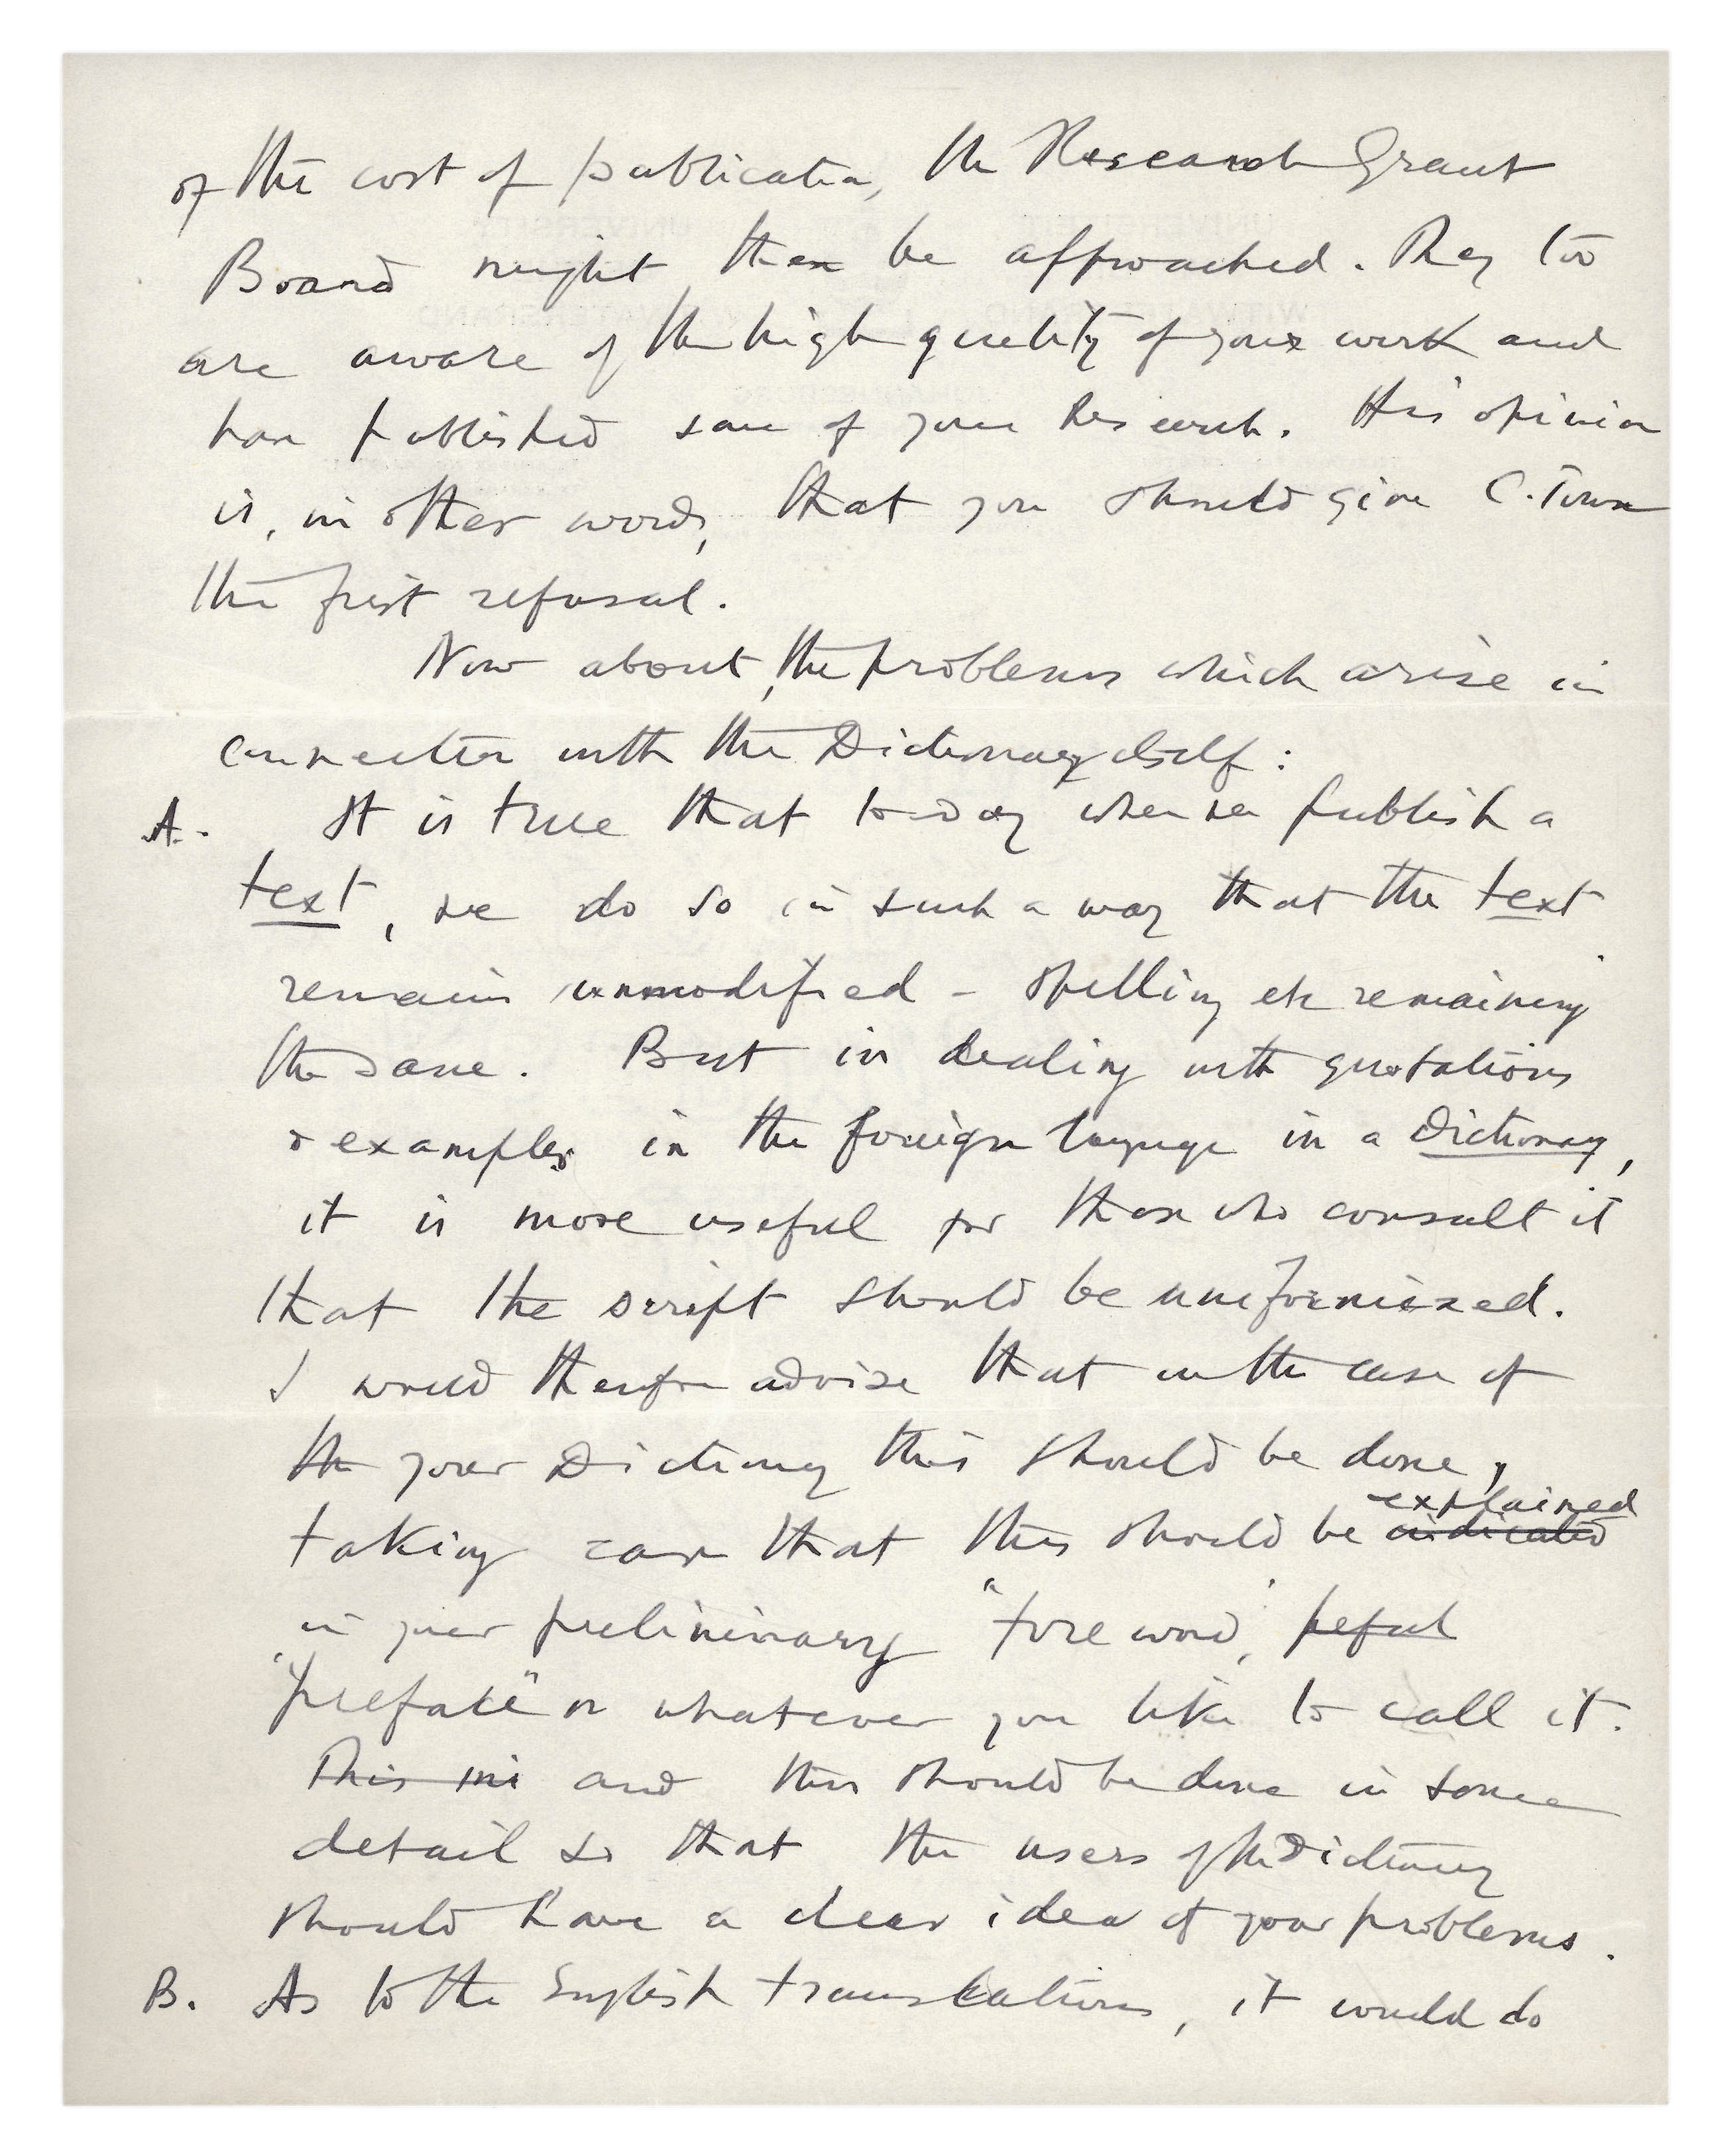 of the cost of publication, the Research Grant
Board might then be approached. They too
are aware of the high quality of your work and
have published some of your research. His opinion
is, in other words, that you should give C. Town
the first refusal.
Now about the problems which arise in
connection with the Dictionary itself:
A. It is true that to-day when we publish a
text, we do so in such a way that the text
remains unmodified - spelling etc remaining
the same. But in dealing with quotations
& examples in the foreign language in a Dictionary,
it is more useful for those who consult it
that the script should be uniformized.
I would therefore advise that in the case of
the your Dictionary this should be done,
explained
taking care that this should be indicated
in your preliminary "foreword", prefat
"preface" or whatever you like to call it.
This mi and this should be done in some
detail so that the users of the Dictionary
should have a clear idea of your problems.
B. As to the English translations, it would do